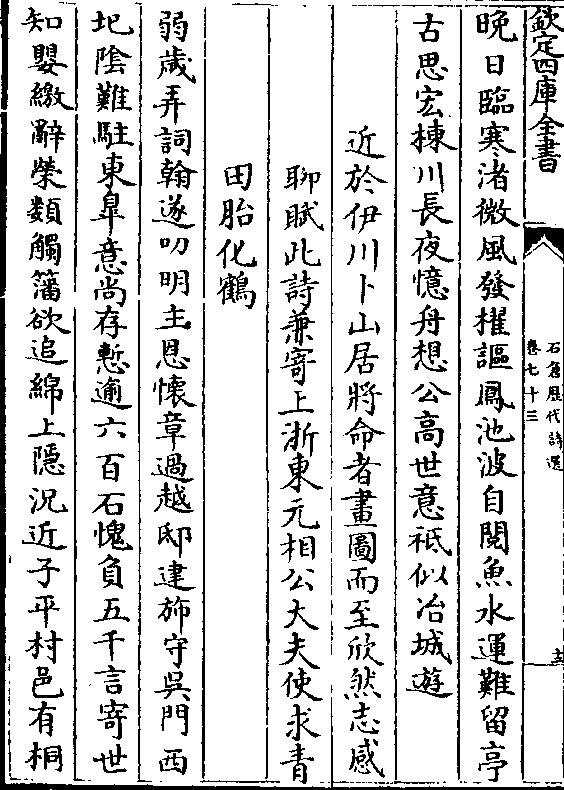 欽定四庫全書
石倉歷代詩選
卷七十三
十五
晚日臨寒渚微風發櫂謳鳳池波自闊魚水運難留亭
古思宏棟川長夜憶舟想公高世意祗似冶城遊
近於伊川卜山居將命者畫圖而至欣然志感
聊賦此詩兼寄上浙東元相公大夫使求青
田胎化鶴
弱歲弄詞翰遂叨明主恩懷章過越邸建斾守吳門西
圯陰難駐東臯意尚存慙逾六百石愧負五千言寄世
知嬰繳辭榮類觸籓欲追綿上隱況近子平村邑有桐